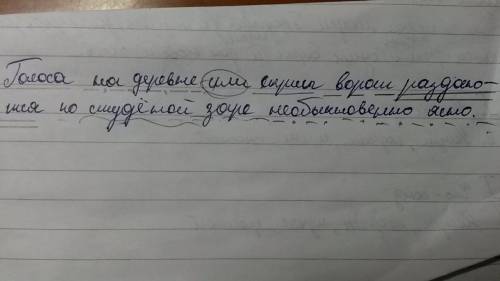 Голоса на деревне или скрипы ворот раздаю-
тся по студёной заре необыкновенно ясно.